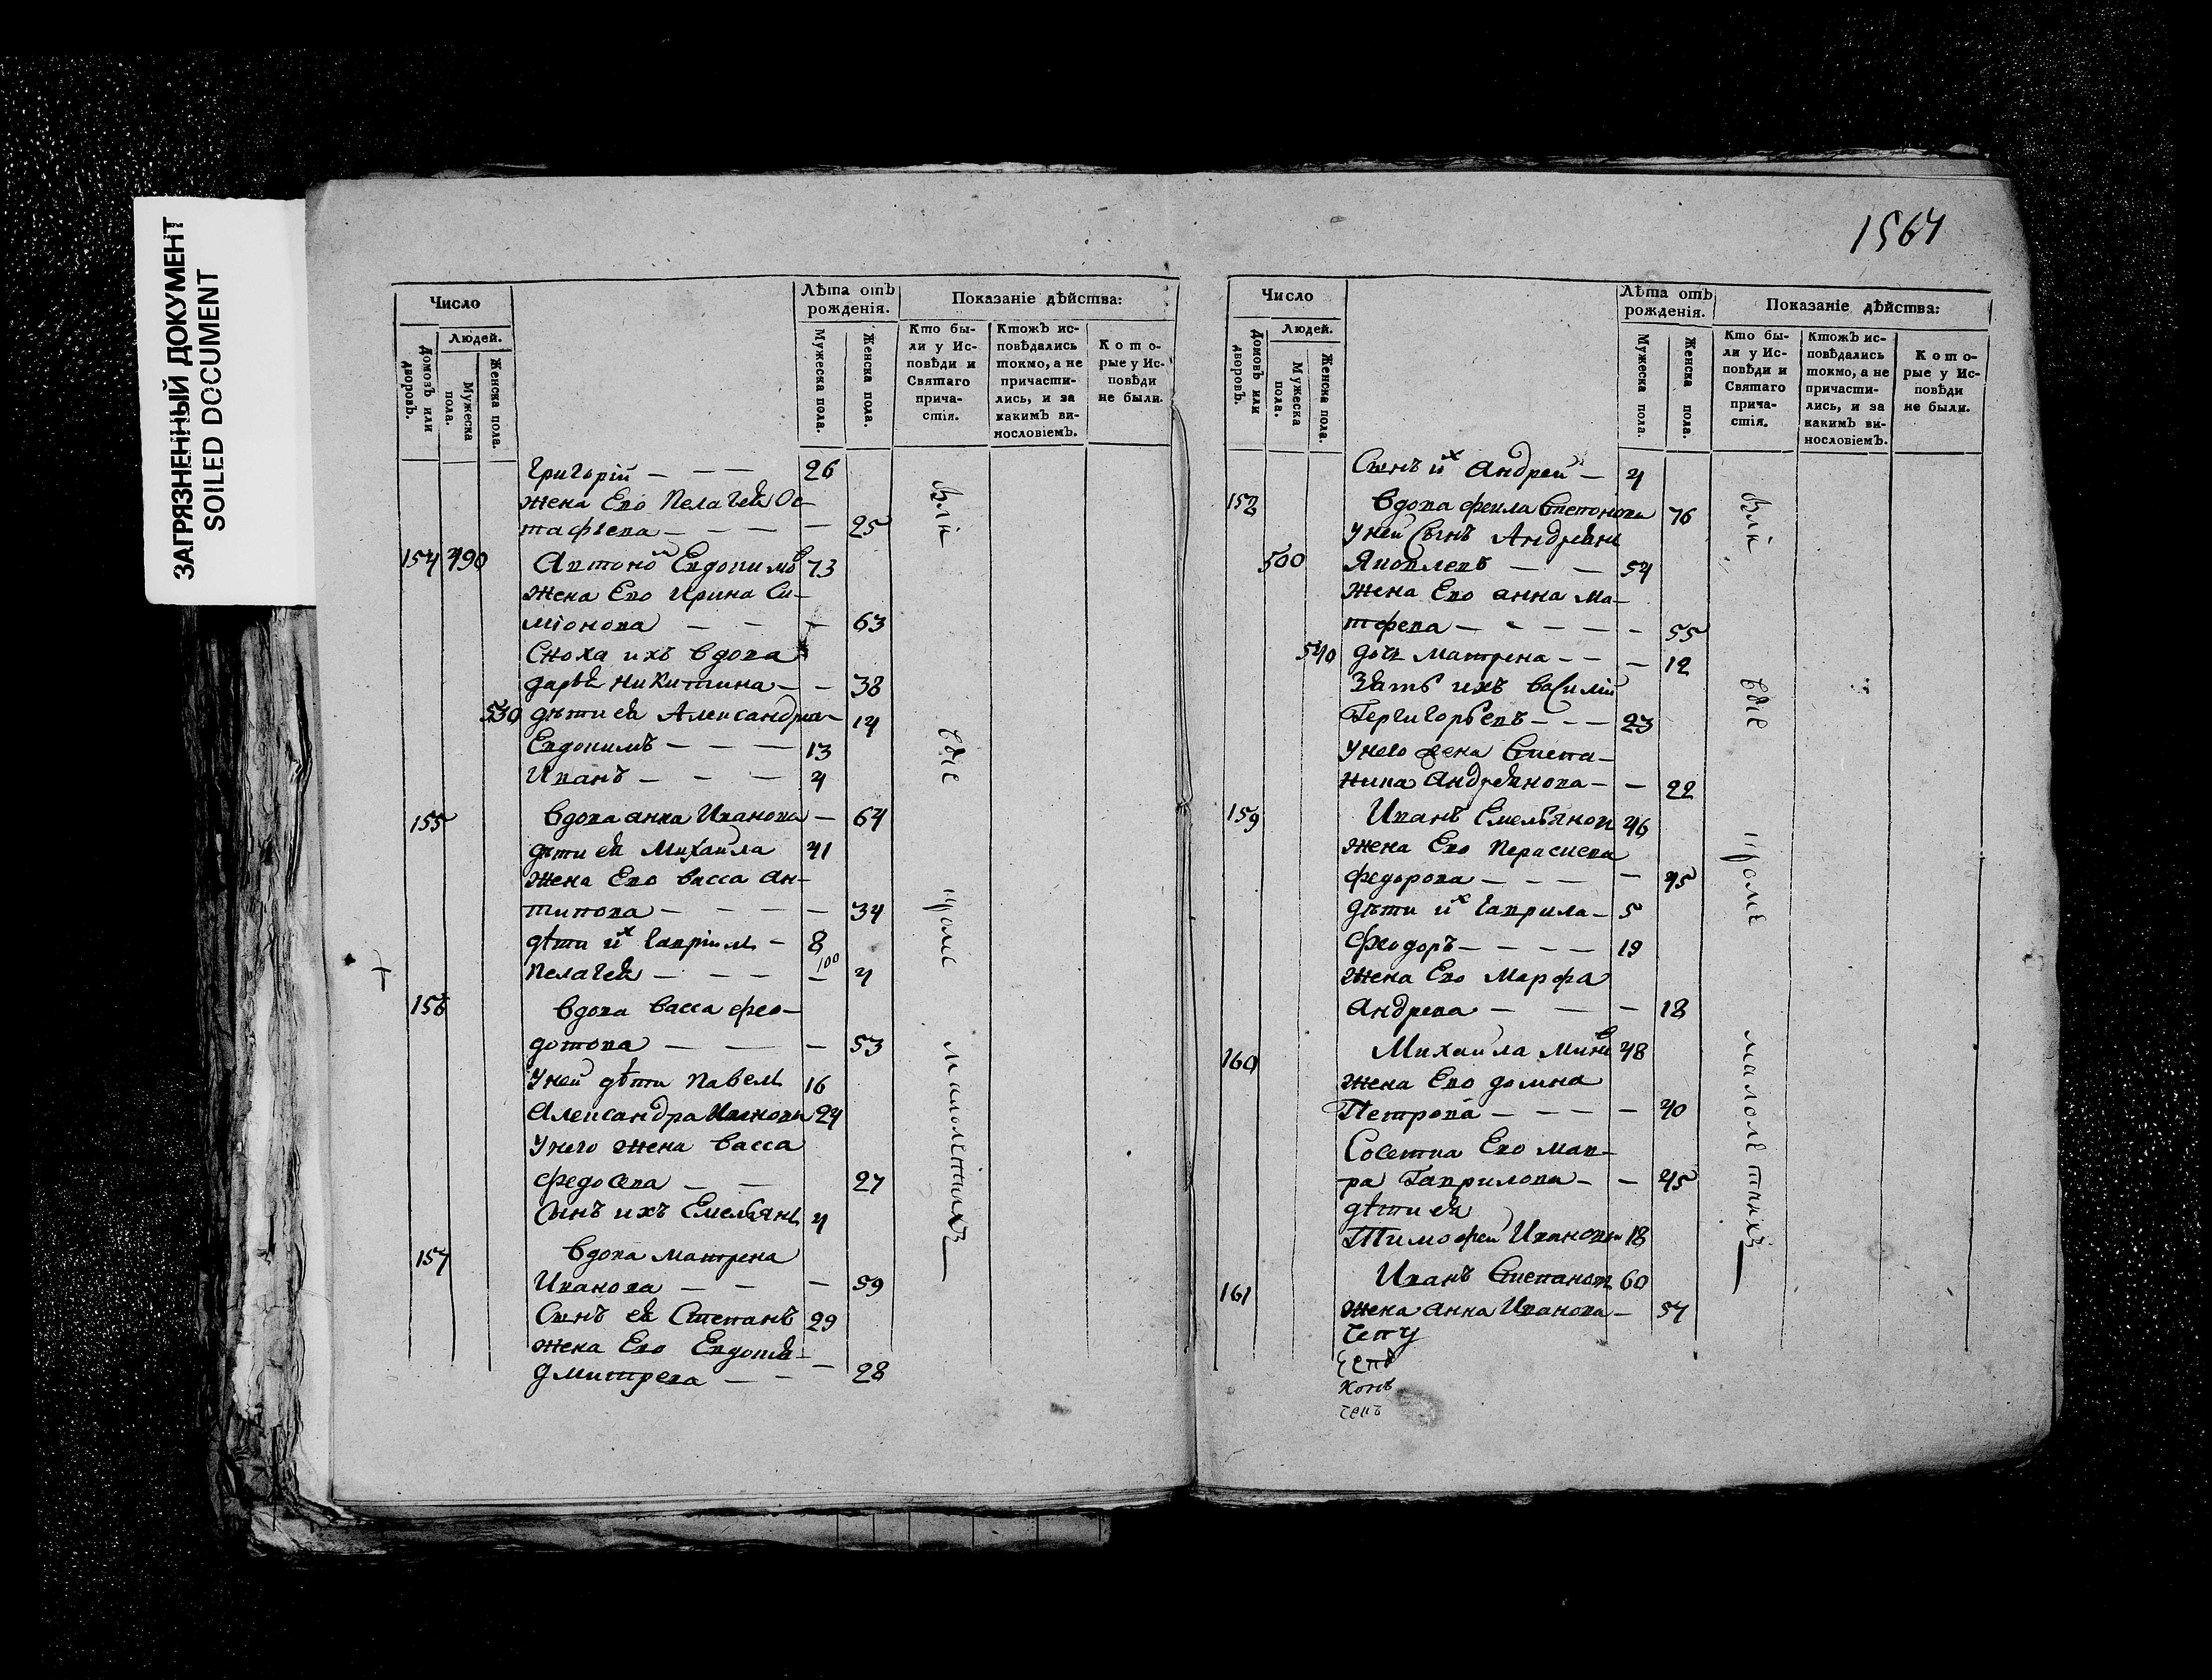 ЗАГРЯЗНЕННЫЙ ДОКУМЕНТ
SOILED DOCUMENT
Число
Людей.
Домовъ или дворовъ.
Мужеска пола.
Женска пола.
Лѣта отъ рожденія.
Мужеска пола.
Женска пола.
Показаніе дѣйства:
Кто бы-
ли у Ис-
повѣди и
Святаго
прича-
стія.
Ктожъ ис-
повѣдались
токмо, а не
причасти-
лись, и за
какимъ ви-
нословіемъ.
Кото-
рые у Ис-
повѣди
не были.
Григорій — — — 26
жена Его Пелагея Ос-
тафьева — — — — 25
154 490 Антонъ Евдокимовъ 73
жена Его Ирина Си-
міонова — — — 63
Сноха ихъ вдова
дарья Никитина — — 38
530 дѣти ея Александра — 14
Евдокимъ — — — 13
Иванъ — — — 4
155 вдова анна Иванова — 64
дѣти ея Михаила 41
жена Его васса Ан-
типова — — — — 34
дѣти их Гавріилъ — 8
100
Пелагея — — — — 4
156 вдова васса фео-
дотова — — — 53
У ней дѣти Павелъ 16
Александра Ивановы 24
У него жена васса
федосева — — 27
Сынъ ихъ Емельянъ 4
157 вдова матрена
Иванова — — — 59
Сынъ ея Степанъ 29
жена Его Евдотья
дмитрева — — — 28
были
все
кромѣ
малолѣтнихъ
1564
Число
Людей.
Домовъ или дворовъ.
Мужеска пола.
Женска пола.
Лѣта отъ рожденія.
Мужеска пола.
Женска пола.
Показаніе дѣйства:
Кто бы-
ли у Ис-
повѣди и
Святаго
прича-
стія.
Ктожъ ис-
повѣдались
токмо, а не
причасти-
лись, и за
какимъ ви-
нословіемъ.
Кото-
рые у Ис-
повѣди
не были.
Сынъ их Андрей — 4
158 вдова феила Степонова 76
У ней Сынъ Андреянъ
500 Яковлевъ — — 54
жена Его анна Ма-
тфева — — — — — 55
540 дочь Матрена — — — 12
Зять ихъ василій
Гергигорьевъ — — — 23
У него жена Степа-
нида Андреянова — — 22
159 Иванъ Емельяновъ 46
жена Его Парасковя
федорова — — — — 45
дѣти их Гаврила — 5
феодоръ — — — — 19
жена Его Марфа
Андрева — — — 18
160 Михаила Минѣв 48
жена Его домна
Петрова — — — — 40
Советка Его мав-
ра Гаврилова — — 45
дѣти ея
Тимофей Ивановъ 18
161 Иванъ Степановъ 60
жена анна Иванова — 54
были
все
кромѣ
малолетнихъ